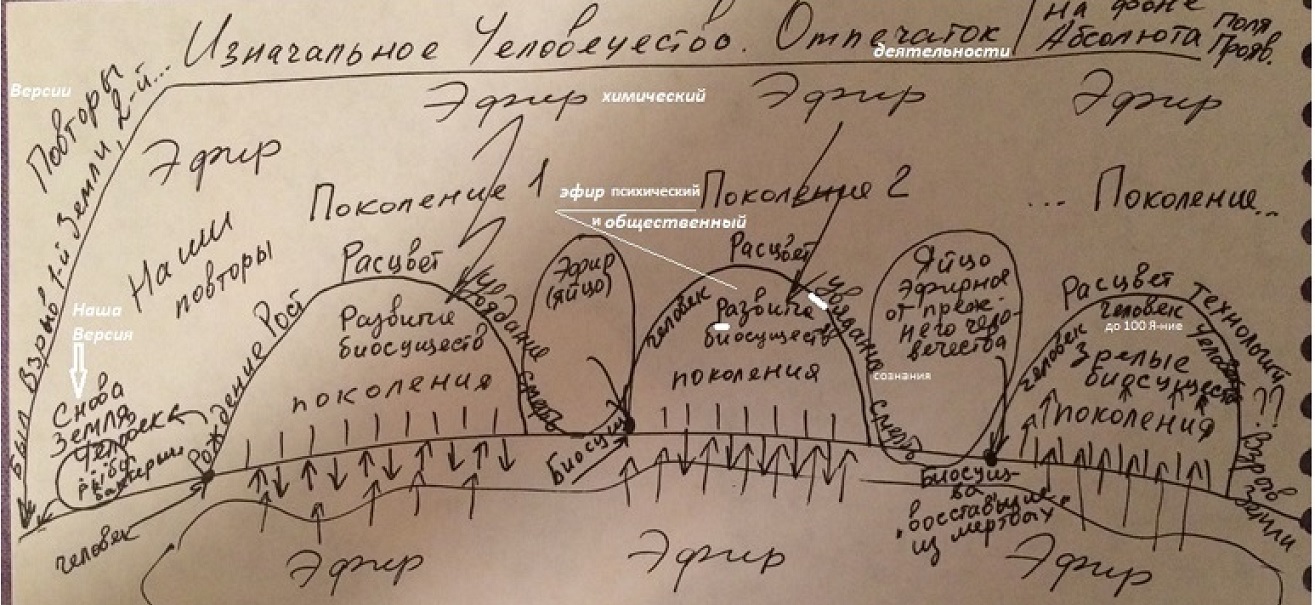 Изначальное Человечество. Отпечаток
деятельности
на фоне
Абсолюта
Поля
Прояв.
Версии
Повторы
1-й Земли, 2-й...
Был Взрыв
Эфир
Эфир химический
Эфир
Эфир
Наши
повторы
Поколение 1
эфир психический
и общественный
Поколение 2
... Поколение...
Наша
Версия
Снова
Земля
Человек
рыба
Рождение Рост
Расцвет
Увядание
Смерть
Развитие
биосуществ
поколения
Эфир
(яйцо)
Биосущ
человек
Расцвет
Увядание
сознания
Смерть
Развитие
биосуществ
поколения
Яйцо
Эфирное
от преж-
него чело-
вечества
Биосущ-
ва
"восставшие
из мертвых"
человек
Расцвет
Человек
до 100 Я-ние
Человек
Технологий
??
Взрыв
Земли
Зрелые
биосуществ
поколения
человек
Эфир
Эфир
Эфир